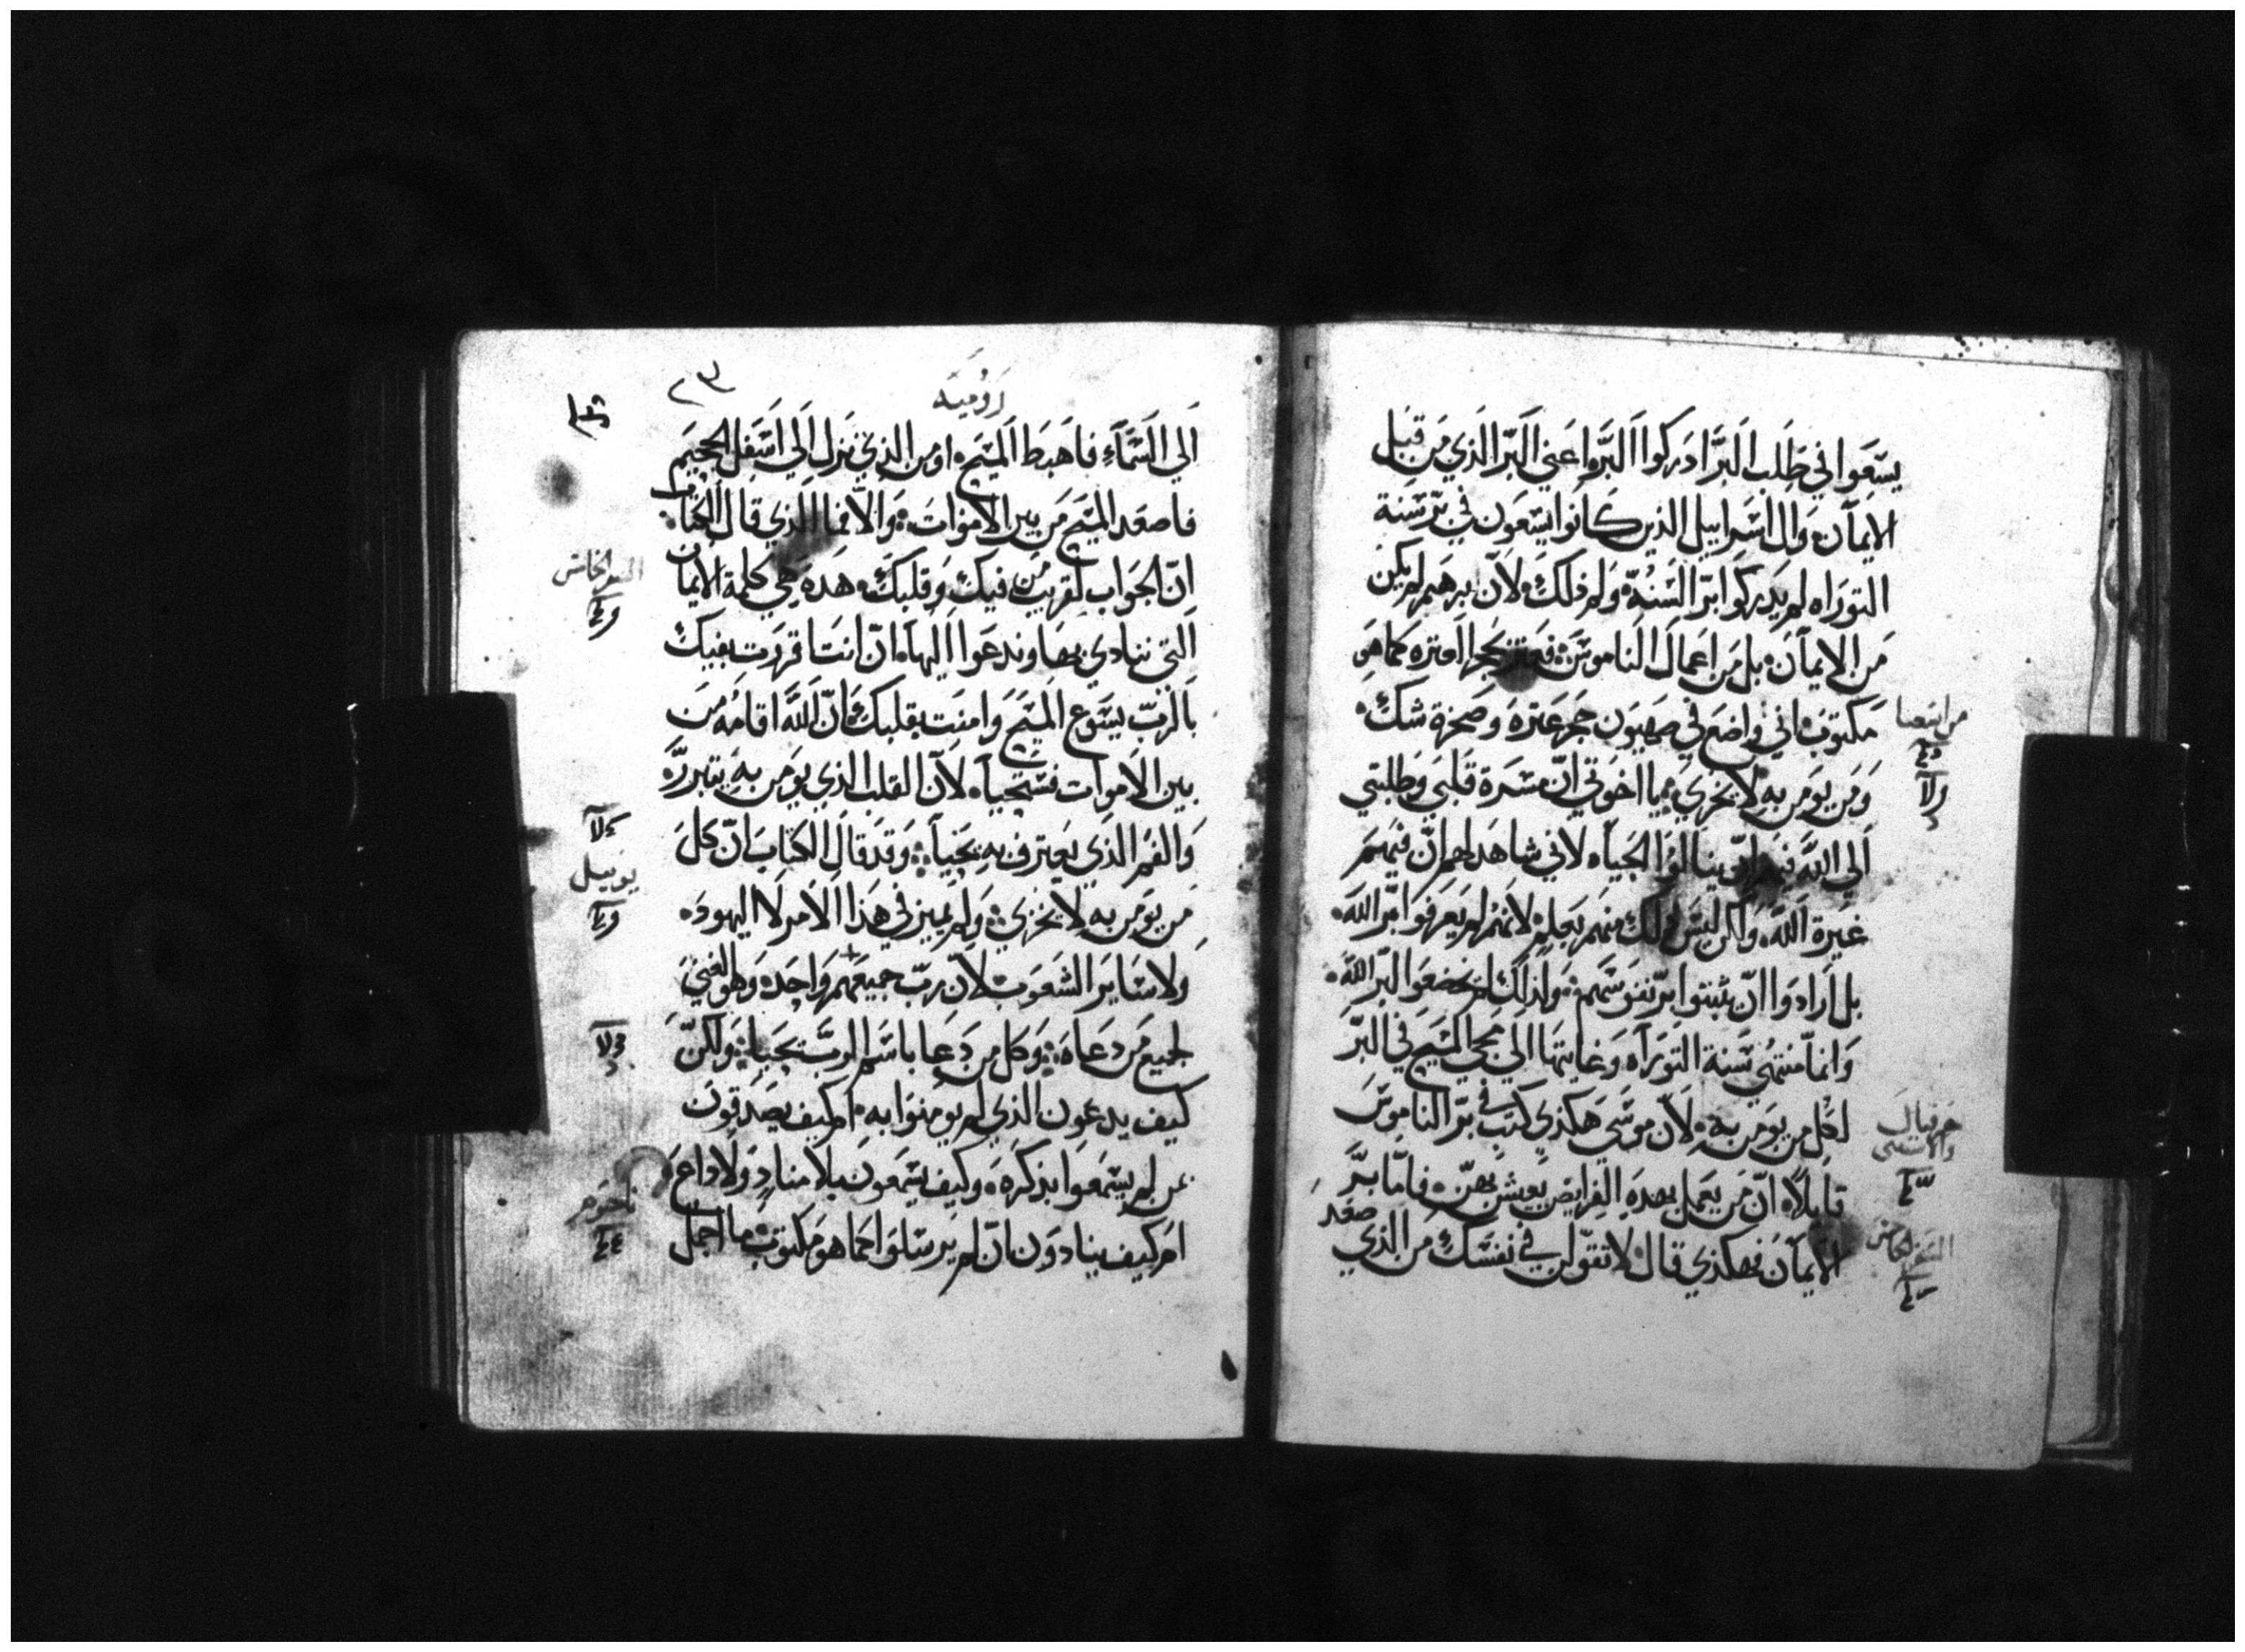 يسعوا في طلب البر ادركوا البر اعني البر الذي من قبل
الايمان وال اسراييل الذين كانوا يسعون في بر سنة
التوراه لم يدركوا بر السنه ولم ذلك لان برهم لم يكن
من الايمان بل من اعمال الناموس كما هو
مكتوب اني واضع في صهيون حجر عثره وصخرة شك
ومن يومن به لا يخزي يا اخوتي ان مسرة قلبي وطلبتي
الي الله فيهم ان ينالوا الحياه لاني شاهد لهم ان فيهم
غيرة الله ولكن ليس ذلك منهم بعلم لانهم لم يعرفوا بر الله
بل ارادوا ان يثبتوا بر نفوسهم ولذلك لم يخضعوا لبر الله
وانما منتهي سنة التوراه وغايتها الي مجي المسيح في البر
لكل من يومن به لان موسي هكذي كتب في بر الناموس
قايلا ان من يعمل بهده الفرايض يعيش بهن فاما بر
الايمان فهكذي قال لا تقولن في نفسك من الذي صعد
من اشعيا
حزقيال
والاستثنى
السفر الخامس
روميه
٢٣
الي السماء فاهبط المسيح او من الذي نزل الي اسفل الجحيم
فاصعد المسيح من بين الاموات والا فما الذي قال الكتاب
ان الجواب لقريب من فيك وقلبك هده هي كلمة الايمان
التي ننادي بها وندعوا اليها ان انت اقررت بفيك
بالرب يسوع المسيح وامنت بقلبك ان الله اقامه من
بين الاموات فستحيا لان القلب الذي يومن به يتبرر
والفم الذي يعترف به يحيا وقد قال الكتاب ان كل
من يومن به لا يخزي ولم يميز في هذا الامر لا اليهود
ولا ساير الشعوب لان رب جميعهم واحد وهو الغني
لجميع من دعاه وكل من دعا باسم الرب يحيا ولكن
كيف يدعون الذي لم يومنوا به ام كيف يصدقون
بمن لم يسمعوا بذكره وكيف يسمعون بلا مناد ولا داع
ام كيف ينادون ان لم يرسلوا كما هو مكتوب ما اجمل
السفر الخامس
يوييل
ناحوم